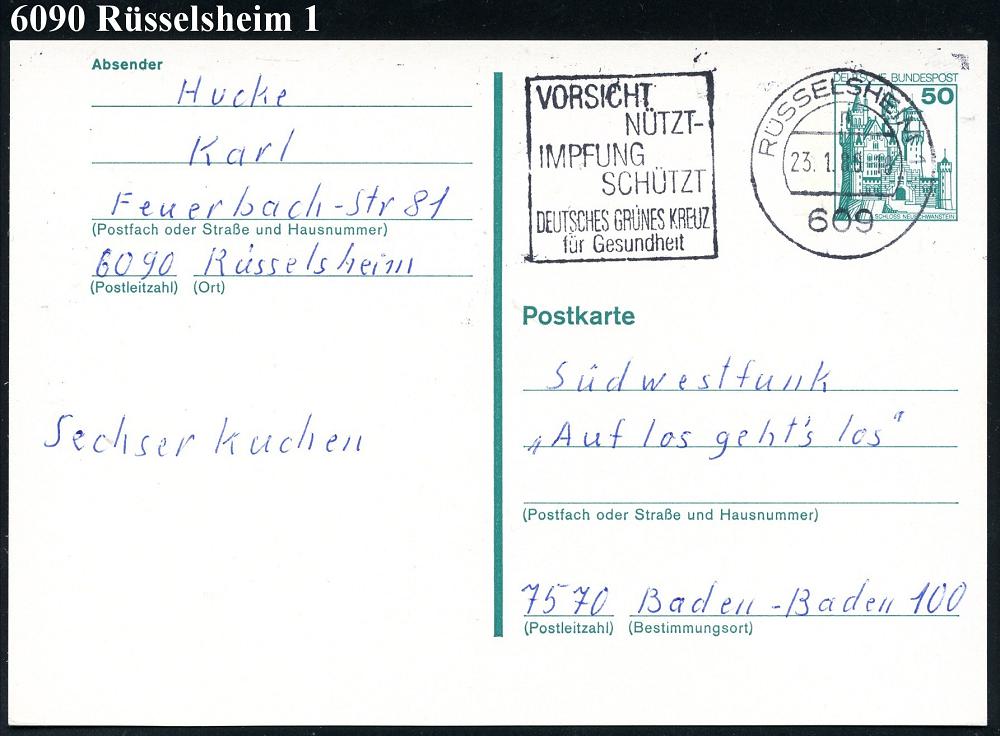 6090 Rüsselsheim 1
Absender
Hucke
Karl
Feuerbach-Str 81
(Postfach oder Straße und Hausnummer)
6090 Rüsselsheim
(Postleitzahl) (Ort)
Sechser kuchen
VORSICHT
NÜTZT-
IMPFUNG
SCHÜTZT
DEUTSCHES GRÜNES KREUZ
für Gesundheit
RÜSSELSHEIM 1
23.1.80
609
DEUTSCHE BUNDESPOST
50
SCHLOSS NEUSCHWANSTEIN
Postkarte
Südwestfunk
„Auf los geht's los"
(Postfach oder Straße und Hausnummer)
7570 Baden-Baden 100
(Postleitzahl) (Bestimmungsort)